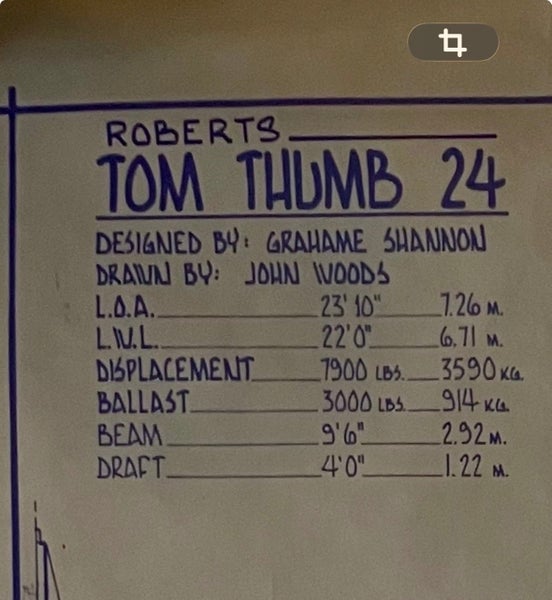 ROBERTS
TOM THUMB 24
DESIGNED BY: GRAHAME SHANNON
DRAWN BY: JOHN WOODS
L.O.A. 23'10" 7.26 M.
L.W.L. 22'0" 6.71 M.
DISPLACEMENT 7900 LBS. 3590 KG.
BALLAST 3000 LBS. 914 KG.
BEAM 9'6" 2.92 M.
DRAFT 4'0" 1.22 M.